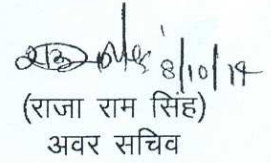 8/10/14
(राजा राम सिंह)
अवर सचिव